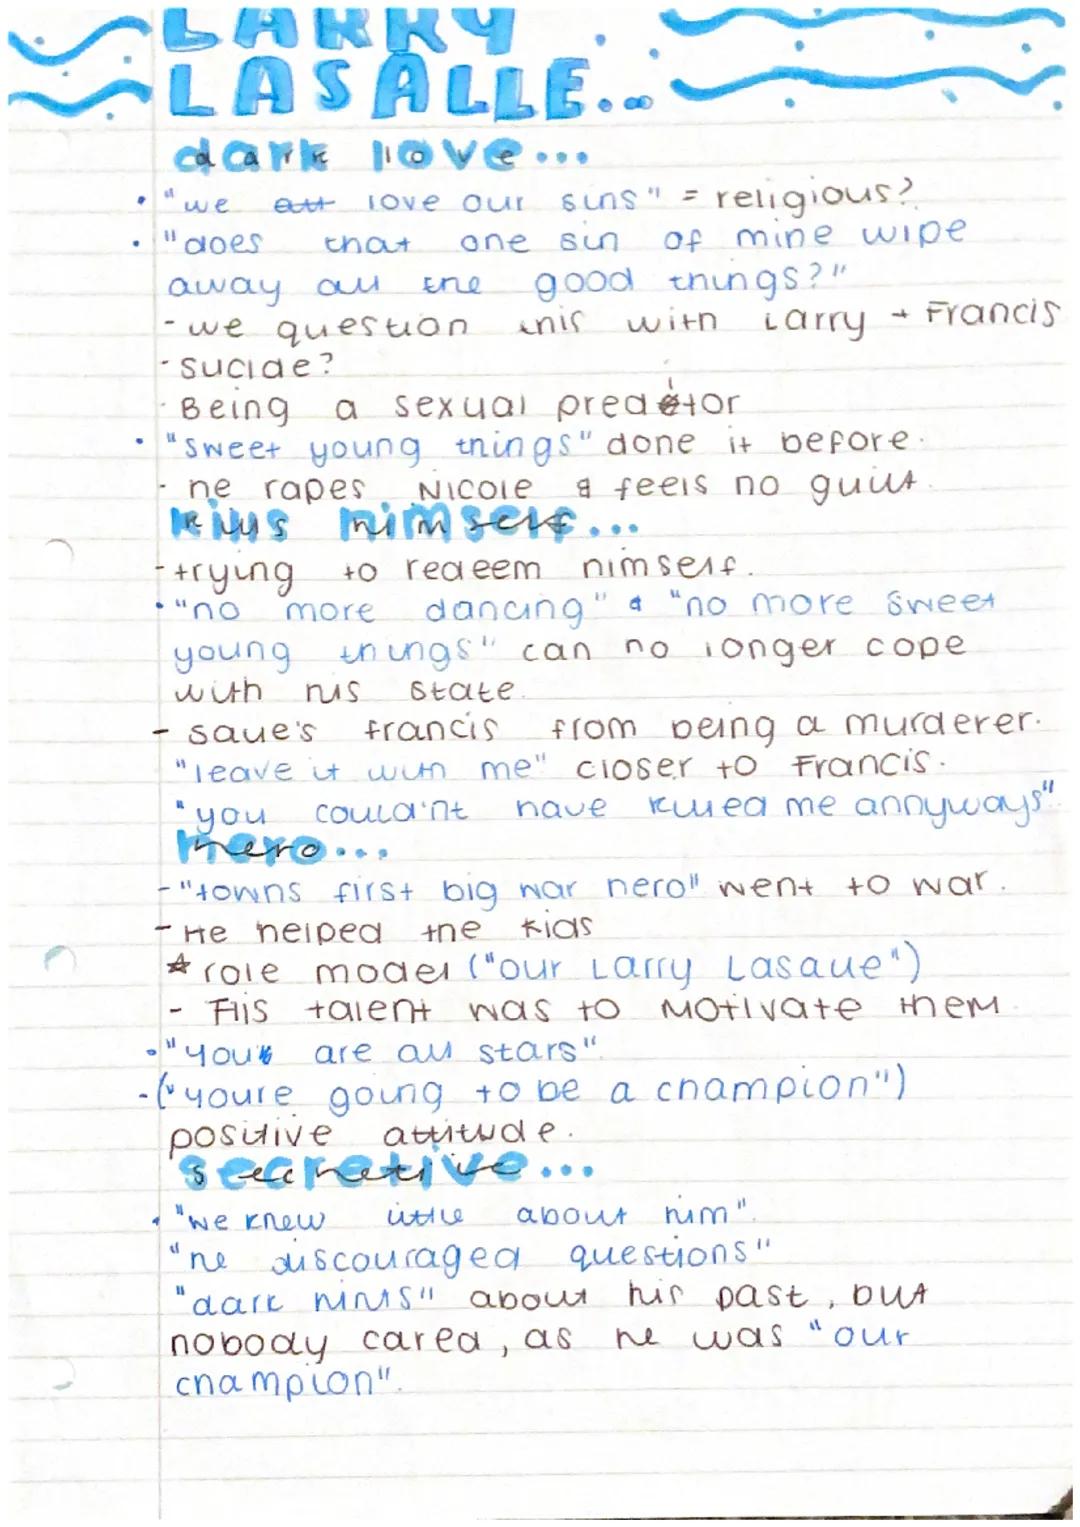 LARRY
LASALLE...
dark love...
"we love our sins" = religious?
"does that one sin of mine wipe
away all the good things?"
- we question this with Larry + Francis
- sucide?
· Being a sexual preditor
· "sweet young things" done it before.
- he rapes Nicole & feels no guilt.
kills himself...
- trying to redeem himself.
· "no more dancing" & "no more sweet
young things" can no longer cope
with his state.
- save's francis from being a murderer.
"leave it with me" closer to Francis.
"you could'nt have killed me annyways"
hero...
- "towns first big war hero" went to war.
- He helped the kids
* role model ("our Larry Lasalle")
- His talent was to motivate them.
· "you are all stars"
- ("youre going to be a champion")
positive attitude.
secretive...
· "we knew little about him".
"he discouraged questions"
"dark hints" about his past, but
nobody cared, as he was "our
champion".